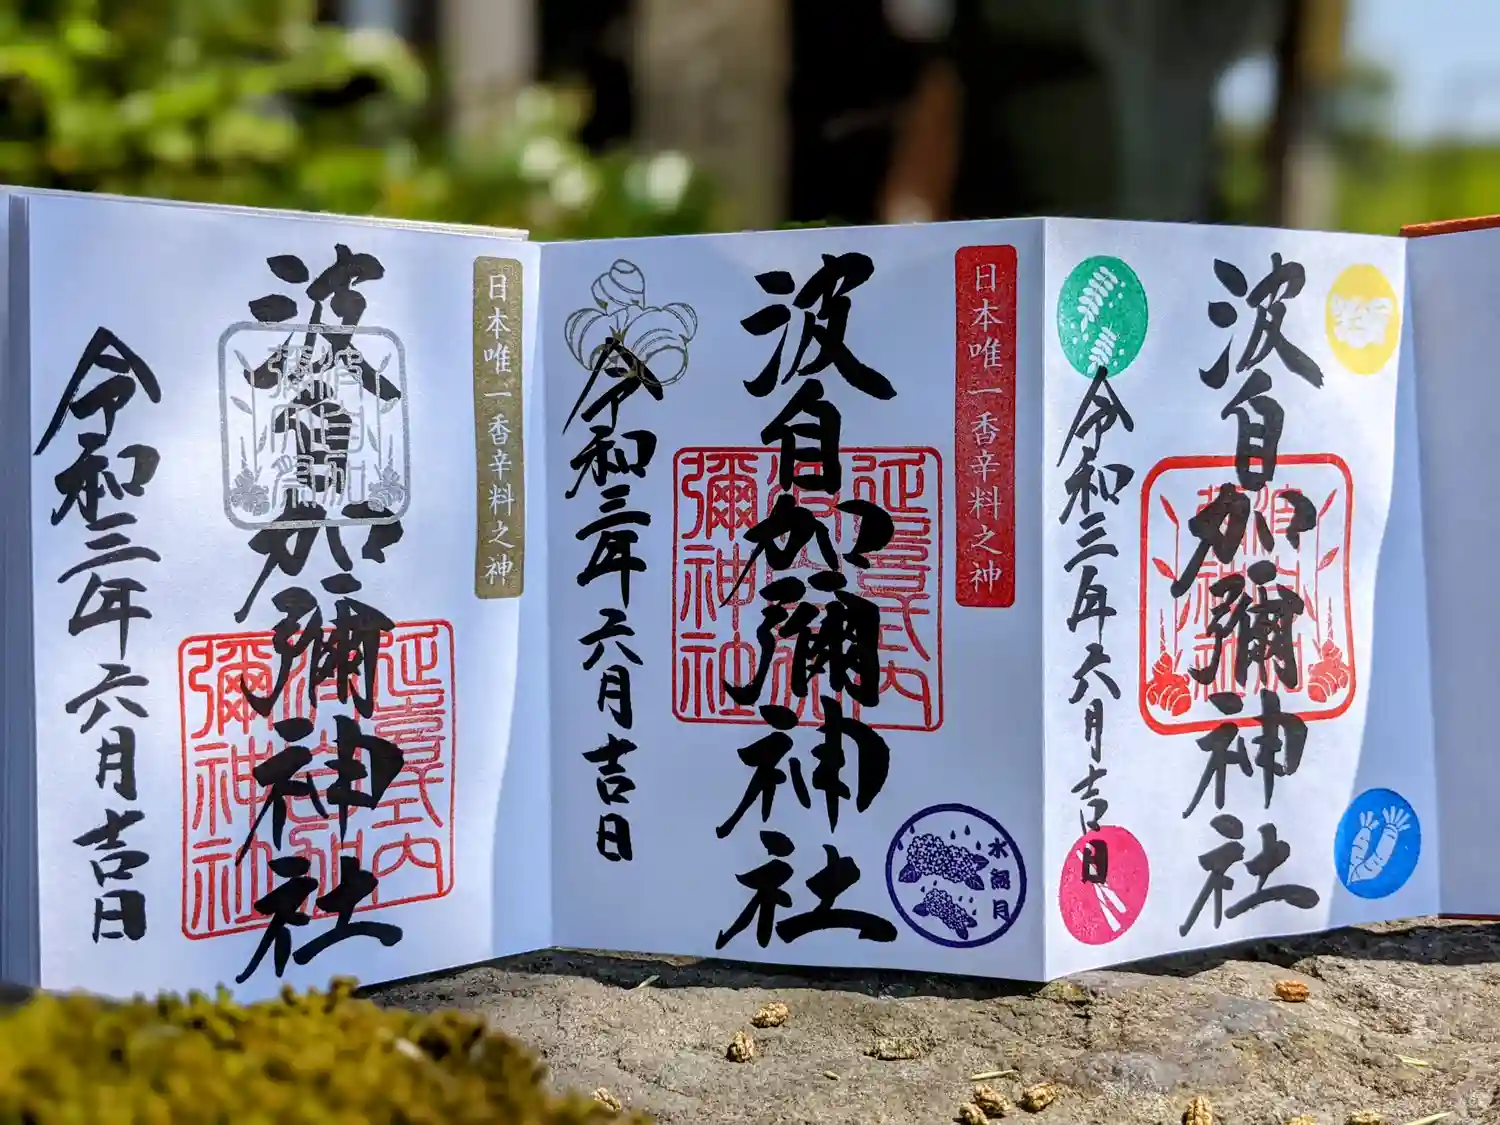 日本唯一香辛料之神
波自加彌神社
令和三年六月吉日
延喜式内
波自加
彌神社
波自加
彌神社
日本唯一香辛料之神
波自加彌神社
令和三年六月吉日
延喜式内
波自加
彌神社
水無月
波自加彌神社
令和三年六月吉日
波自加
彌神社